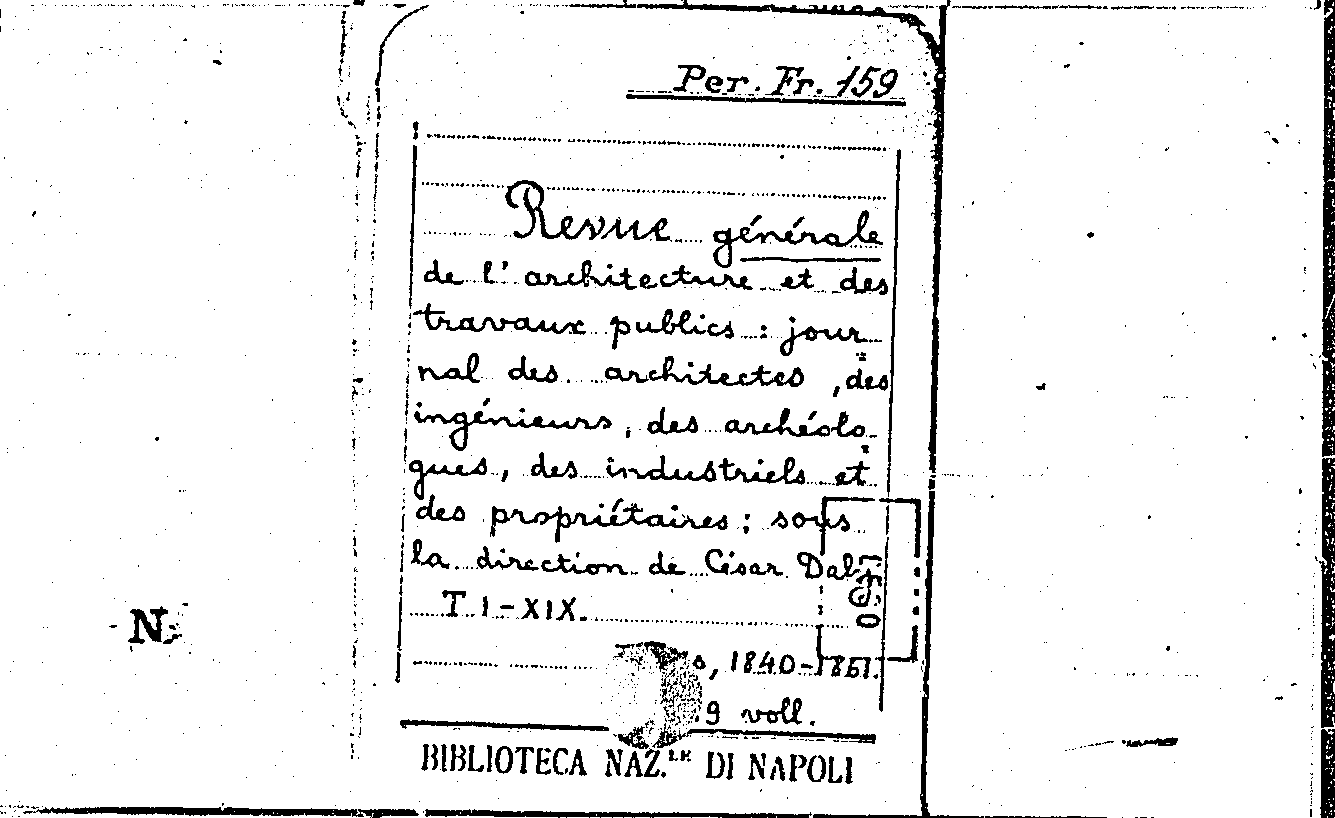 Per. Fr. 159
Revue générale
de l'architecture et des
travaux publics : jour
nal des architectes, des
ingénieurs, des archéolo
gues, des industriels et
des propriétaires; sous
la direction de César Daly
T I-XIX.
s, 1840-1861.
9 voll.
BIBLIOTECA NAZ.LE DI NAPOLI
N